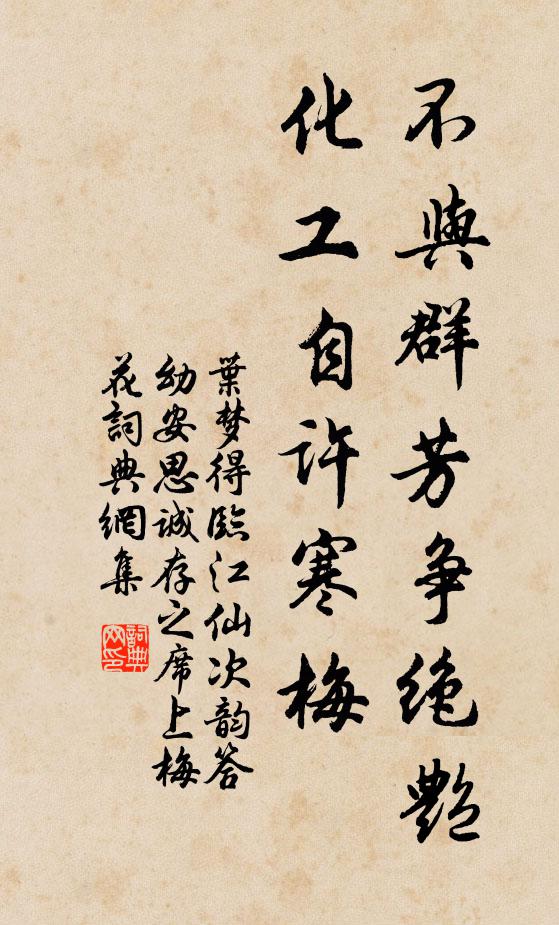 不與群芳争絶艷
化工自许寒梅
葉梦得臨江仙次韵答
幼安思誠存之席上梅
花詞典網集
詞典
网印